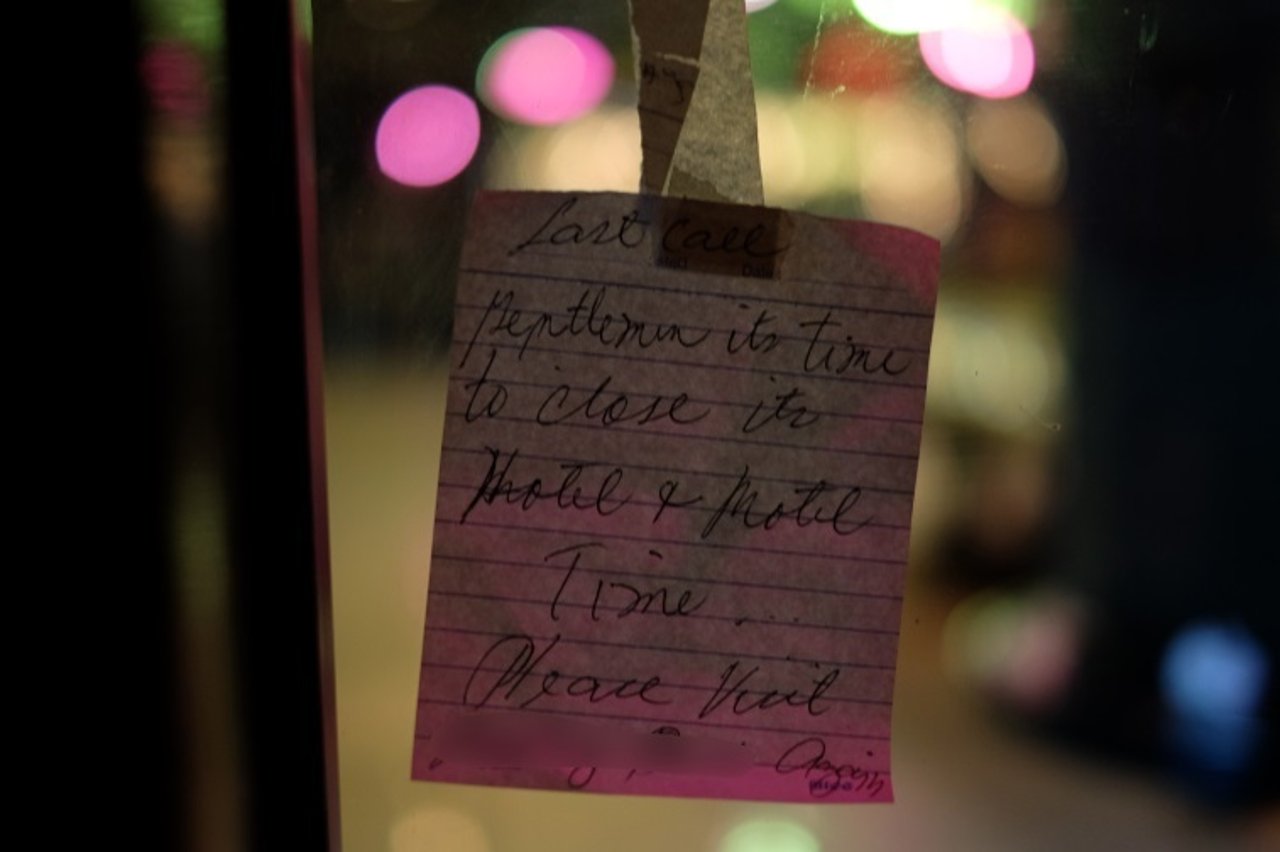 Last Call
Gentlemen its time
to close its
Hotel & Motel
Time ...
Please Visit
Again